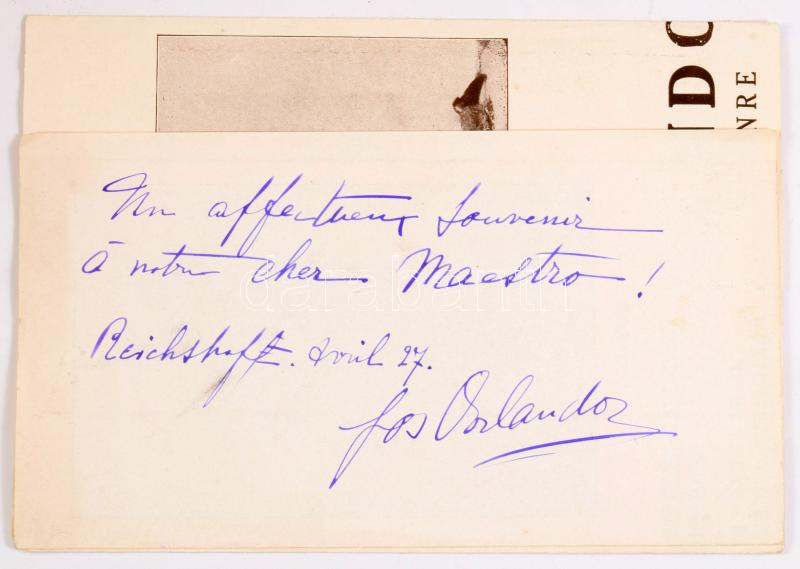 NDO
NRE
Un affectueux Souvenir
à notre cher Maestro !
darabanth
Reichshoff. Avril 27.
Jos Orlandoz